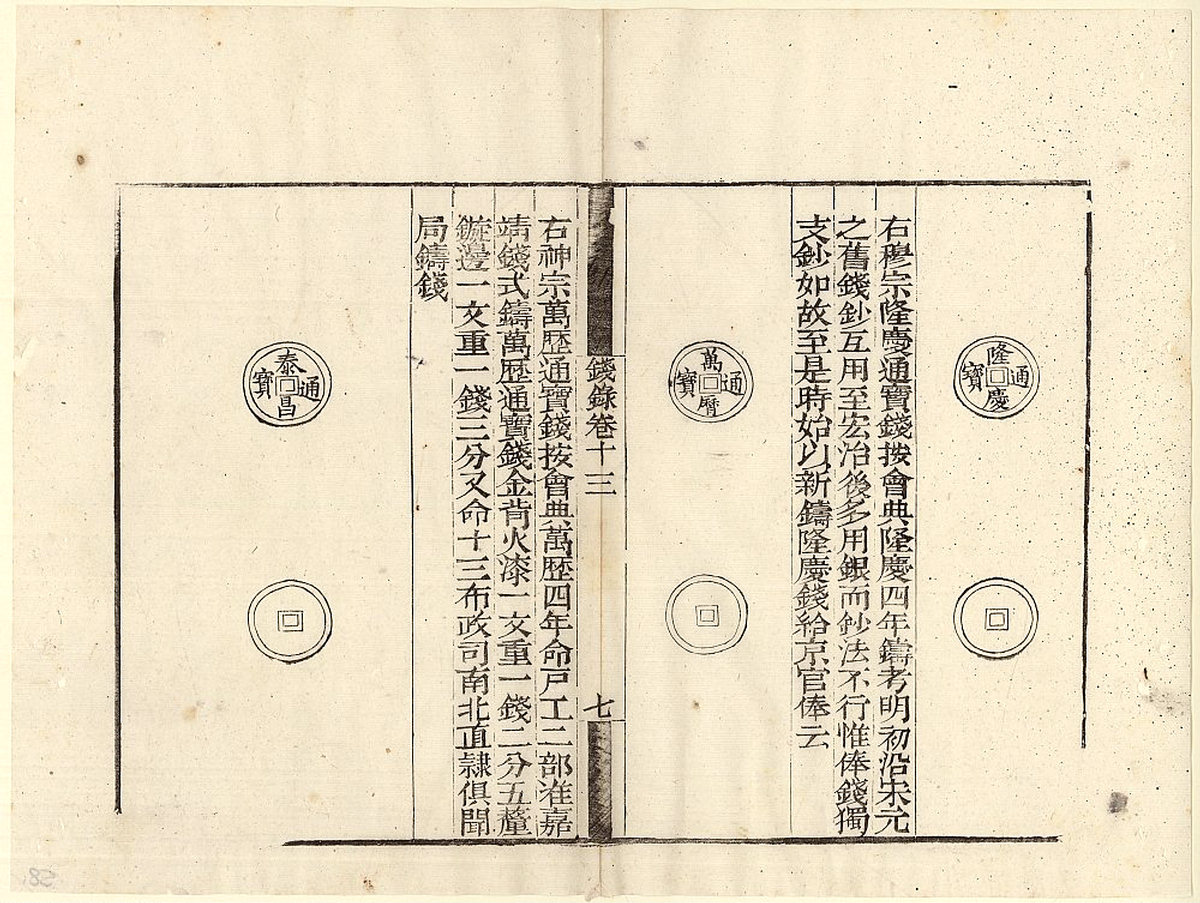 隆慶通寶
右穆宗隆慶通寶錢按會典隆慶四年鑄考明初沿宋元
之舊錢鈔互用至宏治後多用銀而鈔法不行惟俸錢獨
支鈔如故至是時始以新鑄隆慶錢給京官俸云
萬曆通寶
錢錄卷十三
七
右神宗萬歴通寶錢按會典萬歴四年命戶工二部准嘉
靖錢式鑄萬歴通寶錢金背火漆一文重一錢二分五釐
鏇邊一文重一錢三分又命十三布政司南北直隸俱開
局鑄錢
泰昌通寶